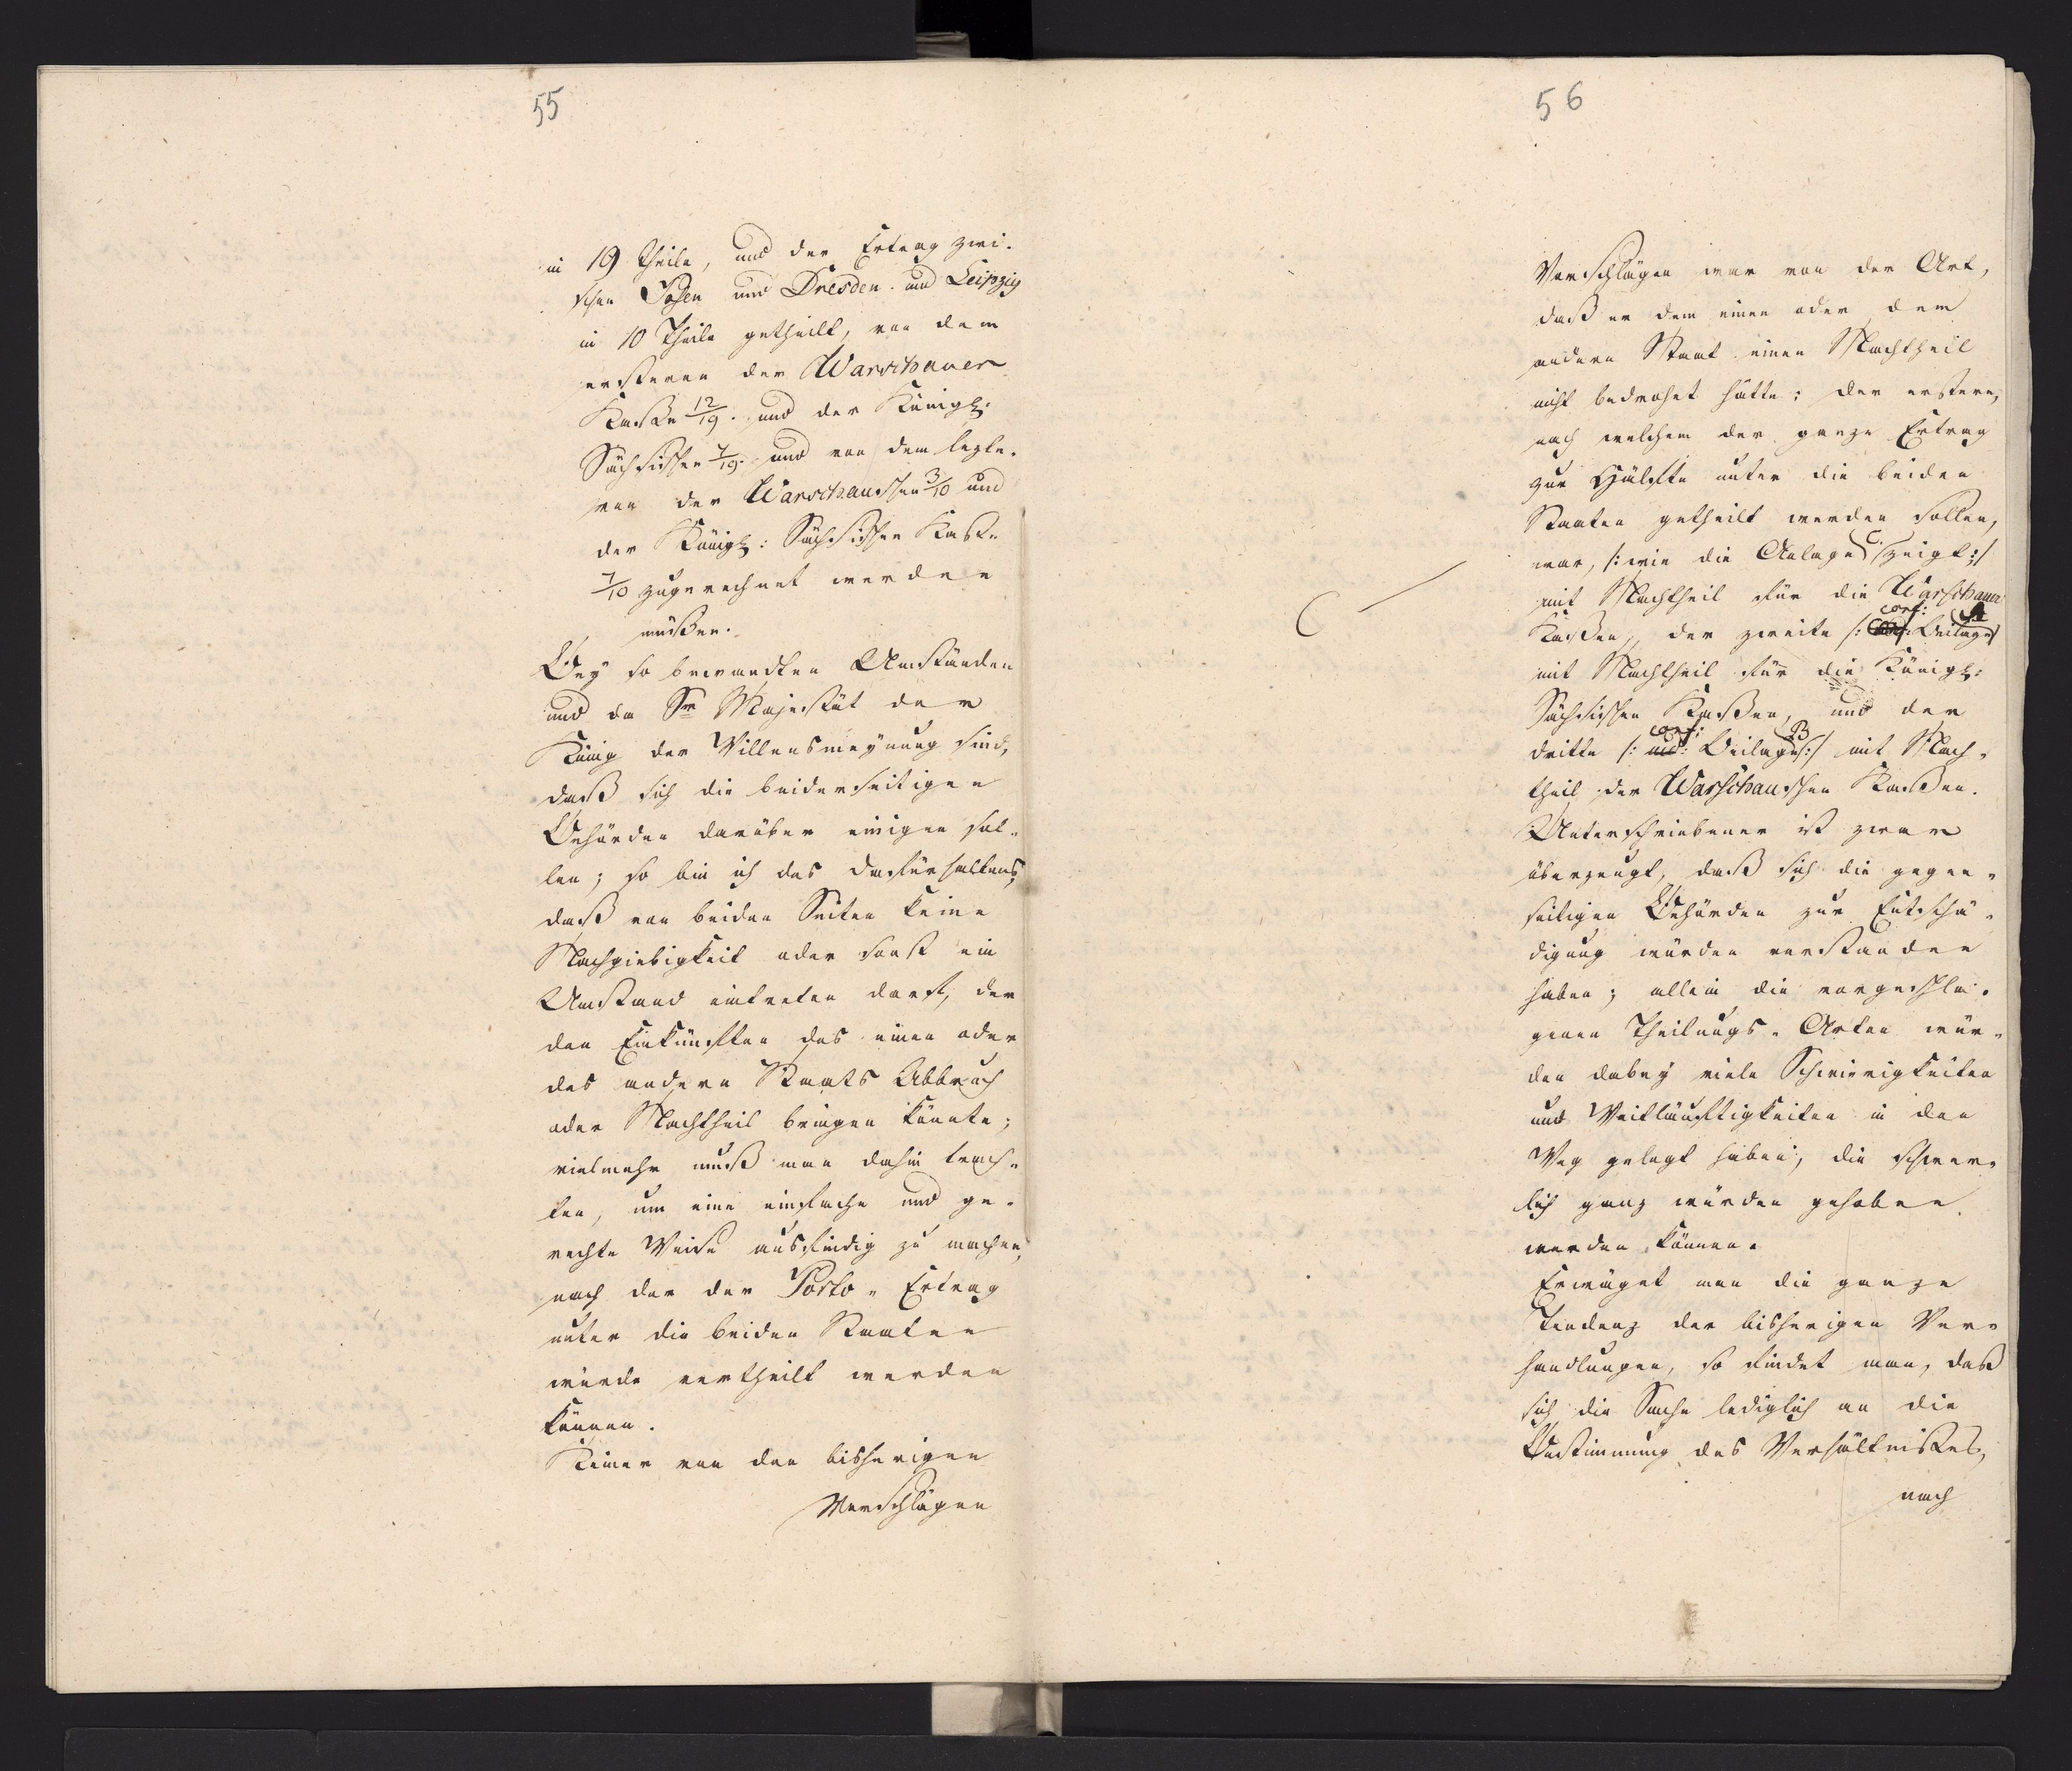 55
in 19 Theile, und der Ertrag zwi-
schen Posen und Dresden und Leipzig
in 10 Theile getheilt, von dem
ersteren der Warschauer
Kaße 12/19. und der Königl:
Sächsischen 7/19. und von dem letzte-
ren der Warschauschen 3/10 und
der Königl: Sächsischen Kaße
7/10 zugerechnet werden
müßen.
Bey so bewandten Umständen
und da Sr Majestät der
König der Willensmeynung sind,
daß sich die beiderseitigen
Behörden darüber einigen sol-
len; so bin ich des dafürhaltens,
daß von beiden Seiten keine
Nachgiebigkeit oder sonst ein
Umstand eintreten darf, der
den Einkünften des einen oder
des andern Staats Abbruch
oder Nachtheil bringen könnte;
vielmehr muß man dahin trach-
ten, um eine einfache und ge-
rechte Weise ausfindig zu machen,
nach der der Porto-Ertrag
unter die beiden Staaten
würde vertheilt werden
können.
Keiner von den bisherigen
Vorschlägen
56
Vorschlägen war von der Art,
daß er dem einen oder dem
andern Staat einen Nachtheil
nicht bedrohet hätte: der erstere,
nach welchem der ganze Ertrag
zur Hälfte unter die beiden
Staaten getheilt werden sollen,
war, /: wie die Anlage C. zeigt :/
mit Nachtheil für die Warschauer
Kaßen, der zweite /: conf: Beilage A
mit Nachtheil für die Königl:
Sächsischen Kaßen, und der
dritte /: conf: Beilage B :/ mit Nach-
theil der Warschauschen Kaßen.
Unterschriebener ist zwar
überzeugt, daß sich die gegen-
seitigen Behörden zur Entschä-
digung würden verstanden
haben; allein die vorgeschla-
genen Theilungs-Arten wür-
den dabey viele Schwierigkeiten
und Weitläuftigkeiten in den
Weg gelegt haben, die schwer-
lich ganz würden gehoben
werden können.
Erwäget man die ganze
Tendenz der bisherigen Ver-
handlungen, so findet man, daß
sich die Sache lediglich an die
Bestimmung des Verhältnißes,
nach